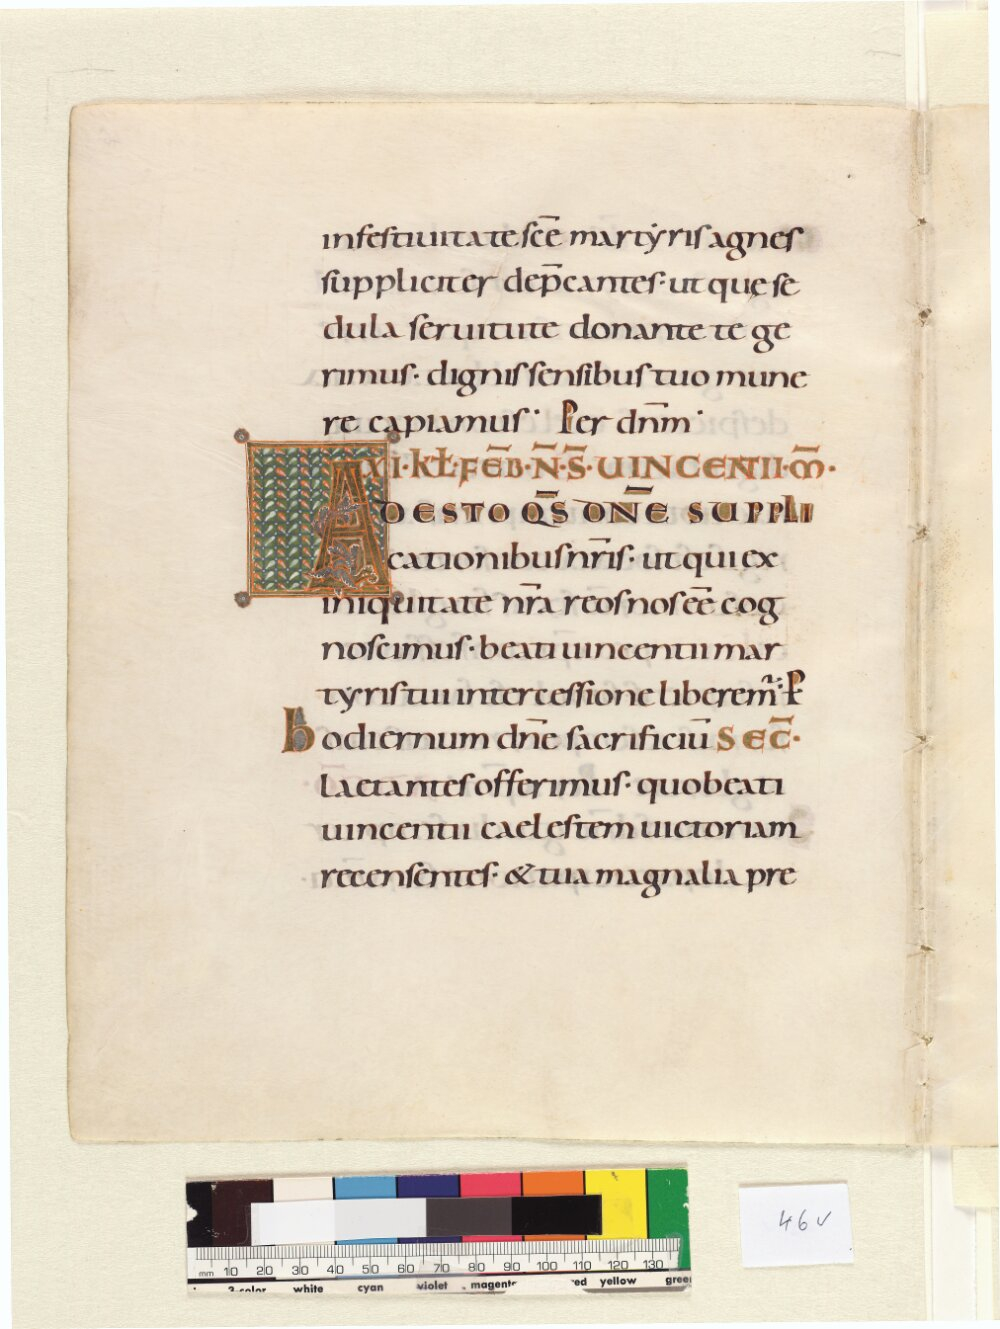 infestiuitate sc̄e martẏris agnes
suppliciter dep̄cantes· ut que se
dula seruitute donante te ge
rimus· dignis sensibus tuo mune
re capiamus· Per dn̄m·
XI·KL̄·FEB̄·N̄·S̄·UINCENTII·M̄·
ADESTO Q̄S DN̄E SUPPLI
cationibus nr̄is· ut qui ex
iniquitate nr̄a reos nos eē cog
noscimus· beati uincentii mar
tẏris tui intercessione liberem̄· P
hodiernum dn̄e sacrificiū SEC̄·
Laetantes offerimus· quo beati
uincentii caelestem uictoriam
recensentes· & tua magnalia pre
46v
mm 10 20 30 40 50 60 70 80 90 100 110 120 130
3-color white cyan violet magenta red yellow green